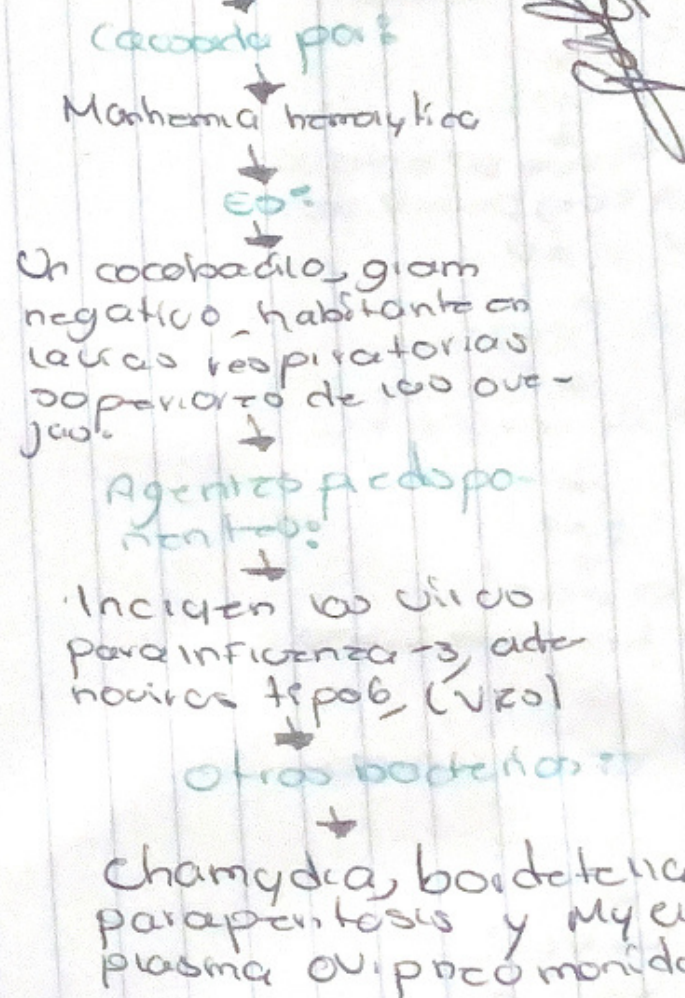 Causada por:
Manhemia hemolytica
Es:
Un cocobacilo, gram
negativo, habitante en
las vías respiratorias
superiores de las ove-
jas.
Agentes predispo-
nentes:
Incluyen los virus
parainfluenza-3, ade-
novirus tipo 6, (VRS)
Otras bacterias:
Chamydia, bordetella
parapertosis y Myco
plasma ovipneomonida